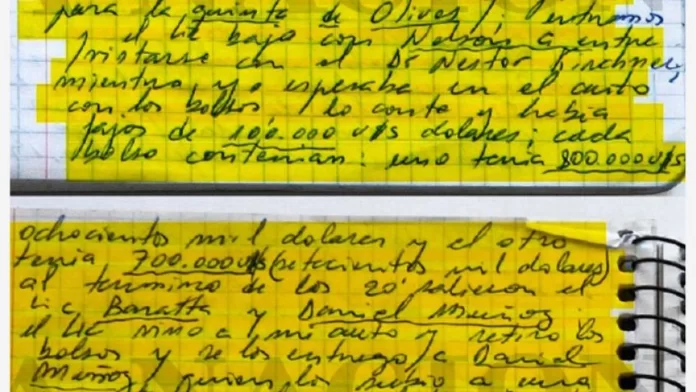 para la quinta de Olivos /. entramos
el Lic bajo con Nelson a entre
vistarse con el Dr Nestor Kirchner,
mientras yo esperaba en el auto
con los bolsos / lo conte y habia
fajos de 100.000 u$s dolares; cada
bolso contenian: uno tenia 800.000 u$s
ochocientos mil dolares y el otro
tenia 700.000 u$s (setecientos mil dolares)
al termino de los 20' salieron el
Lic Baratta y Daniel Muñoz
el Lic vino a mi auto y retiro los
bolsos y se los entrego a Daniel
Muñoz, quien los subio a una